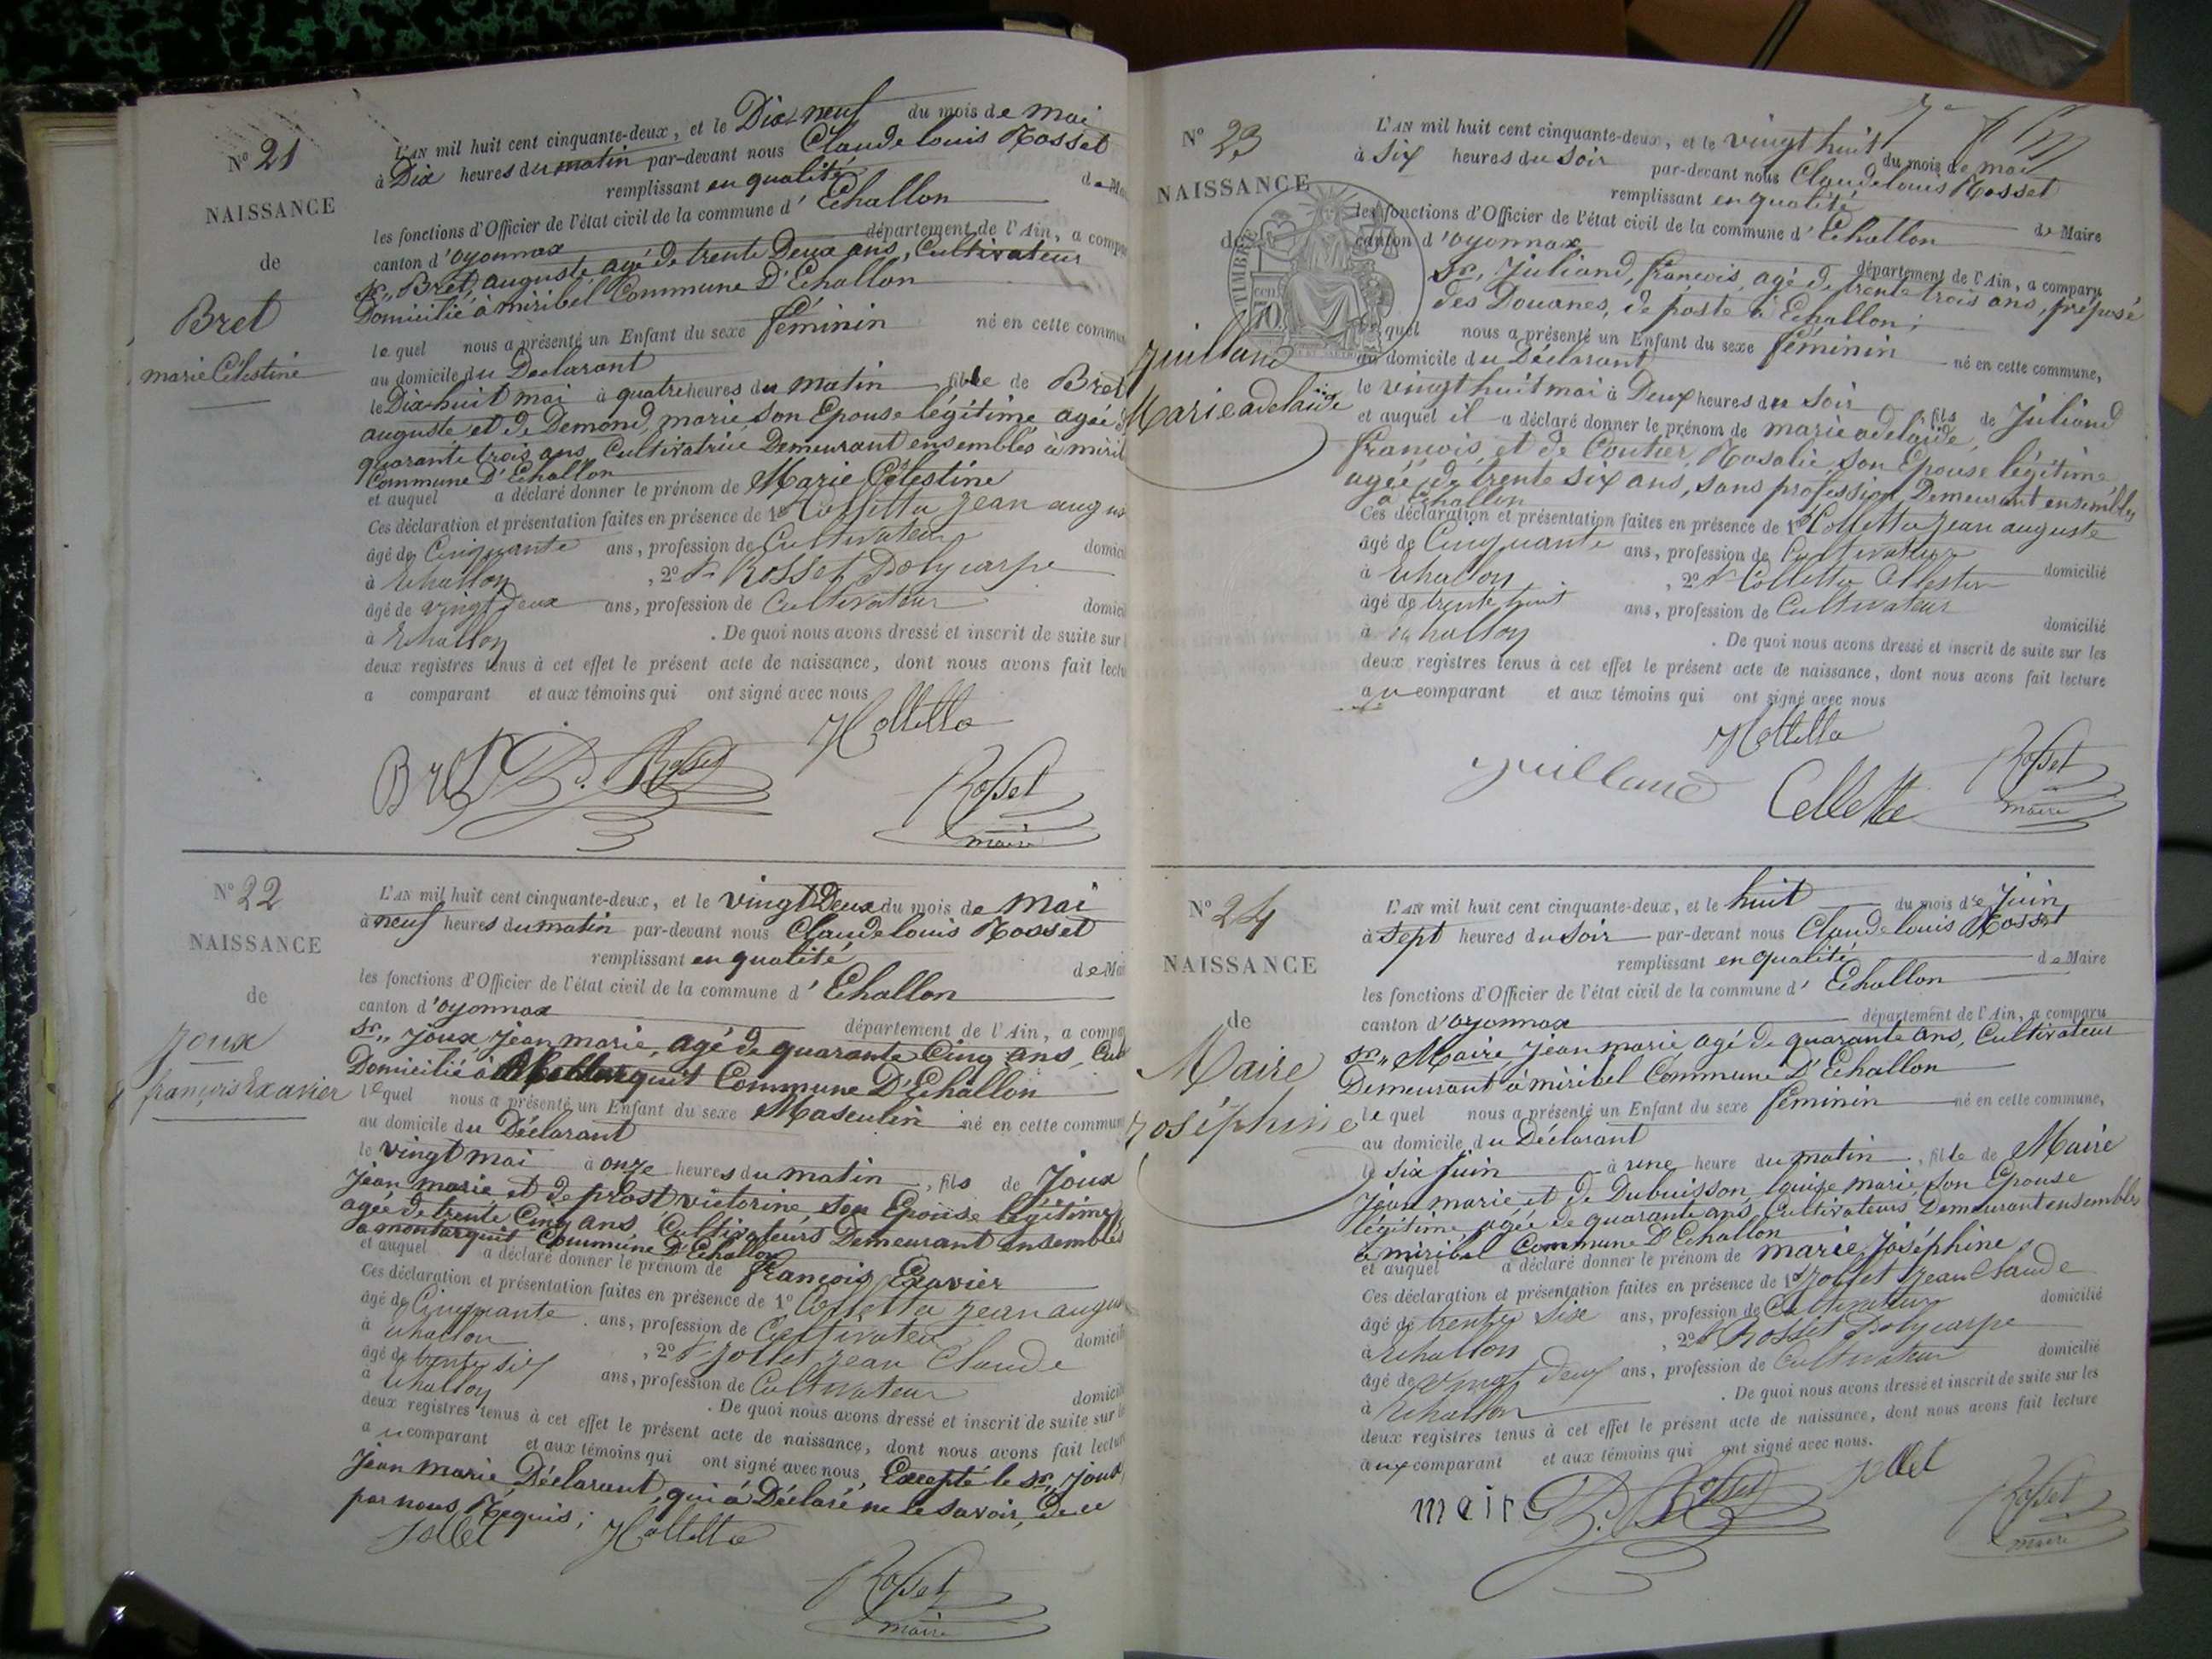 N° 21
NAISSANCE
de
Bret
marie Célestine
L'AN mil huit cent cinquante-deux, et le Dix neuf du mois de mai
à Dix heures du matin par-devant nous Claude louis Rosset
remplissant en qualité de Mai
les fonctions d'Officier de l'état civil de la commune d'Echallon
canton d'oyonnax département de l'Ain, a compa
Sr,, Bret, auguste agé de trente Deux ans, Cultivateur
Domicilié à miribel Commune D'Echallon
lequel nous a présenté un Enfant du sexe féminin né en cette commun
au domicile du Declarant
le Dix-huit mai à quatre heures du matin fille de Bret
auguste et de Demond, marie son Epouse légitime agée d
quarante trois ans Cultivatrice Demeurant ensembles à mirib
Commune D'Echallon
et auquel a déclaré donner le prénom de Marie Célestine
Ces déclaration et présentation faites en présence de 1° Collettaz jean augus
âgé de Cinquante ans, profession de Cultivateur domici
à Echallon , 2° Sr Rosset Polycarpe
âgé de vingt deux ans, profession de Cultivateur domici
à Echallon . De quoi nous avons dressé et inscrit de suite sur l
deux registres tenus à cet effet le présent acte de naissance, dont nous avons fait lectu
a comparant et aux témoins qui ont signé avec nous
Colletta
Bret P. Rosset
Rosset
maire
N° 22
NAISSANCE
de
joux
françois Exavier
L'AN mil huit cent cinquante-deux, et le vingt Deux du mois de mai
à neuf heures du matin par-devant nous Claude louis Rosset
remplissant en qualité de Mai
les fonctions d'Officier de l'état civil de la commune d'Echallon
canton d'oyonnax département de l'Ain, a compa
Sr,, joux jean marie, agé de quarante Cinq ans, Cul
Domicilié à Commune D'Echallon
lequel nous a présenté un Enfant du sexe Masculin né en cette commun
au domicile du Déclarant
le vingt mai à onze heures du matin, fils de Joux
jean marie et de prost victorine son Epouse légitime
agée de trente Cinq ans Cultivateurs Demeurant ensembles
à montarquit Commune D'Echallon
et auquel a déclaré donner le prénom de françois Exavier
Ces déclaration et présentation faites en présence de 1° Collettaz jean augus
âgé de Cinquante ans, profession de Cultivateur domici
à Echallon , 2° Sr jollet jean Claude
âgé de trente six ans, profession de Cultivateur domici
à Echallon . De quoi nous avons dressé et inscrit de suite sur l
deux registres tenus à cet effet le présent acte de naissance, dont nous avons fait lectur
au comparant et aux témoins qui ont signé avec nous, Excepté le Sr,, joux
jean marie Déclarant, qui a Déclaré ne le savoir, de ce
par nous Requis;
jollet Colletta
Rosset
maire
N° 23
NAISSANCE
de
TIMBRE
70
juilland
Marie adelaïde
L'AN mil huit cent cinquante-deux, et le vingt huit du mois de mai
à Six heures du Soir par-devant nous Claude louis Rosset
remplissant en qualité de Maire
les fonctions d'Officier de l'état civil de la commune d'Echallon
canton d'oyonnax département de l'Ain, a comparu
Sr, Juliand, françois, agé de trente trois ans, préposé
des Douanes, de poste à Echallon;
lequel nous a présenté un Enfant du sexe féminin né en cette commune,
au domicile du Déclarant
le vingt huit mai à Deux heures du Soir fils de Juliand
et auquel il a déclaré donner le prénom de marie adelaïde,
françois, et de Coutier, Rosalie, son Epouse légitime
agée, de trente six ans, sans profession, Demeurant ensembles
à Echallon
Ces déclaration et présentation faites en présence de 1° Collettaz jean auguste
âgé de Cinquante ans, profession de Cultivateur domicilié
à Echallon , 2° Sr Colletta Celestin
âgé de trente huit ans, profession de Cultivateur domicilié
à Echallon . De quoi nous avons dressé et inscrit de suite sur les
deux registres tenus à cet effet le présent acte de naissance, dont nous avons fait lecture
au comparant et aux témoins qui ont signé avec nous
Colletta
juilland Collette Rosset
maire
N° 24
NAISSANCE
de
Maire
joséphine
L'AN mil huit cent cinquante-deux, et le huit du mois de Juin
à sept heures du Soir par-devant nous Claude louis Rosset
remplissant en qualité de Maire
les fonctions d'Officier de l'état civil de la commune d'Echallon
canton d'oyonnax département de l'Ain, a comparu
Sr,, Maire jean marie agé de quarante ans, Cultivateur
Demeurant à miribel Commune D'Echallon
lequel nous a présenté un Enfant du sexe féminin né en cette commune,
au domicile du Déclarant
le six Juin à une heure du matin, fille de Maire
jean marie et de Dubuisson, louise marie, son Epouse
légitime agée de quarante ans, Cultivateurs Demeurant ensembles
à miribel Commune D'Echallon
et auquel a déclaré donner le prénom de marie, Joséphine
Ces déclaration et présentation faites en présence de 1° jollet jean Claude
âgé de trente six ans, profession de Cultivateur domicilié
à Echallon , 2° Sr Rosset Polycarpe
âgé de vingt deux ans, profession de Cultivateur domicilié
à Echallon . De quoi nous avons dressé et inscrit de suite sur les
deux registres tenus à cet effet le présent acte de naissance, dont nous avons fait lecture
aux comparant et aux témoins qui ont signé avec nous.
maire P. Rosset jollet
Rosset
maire